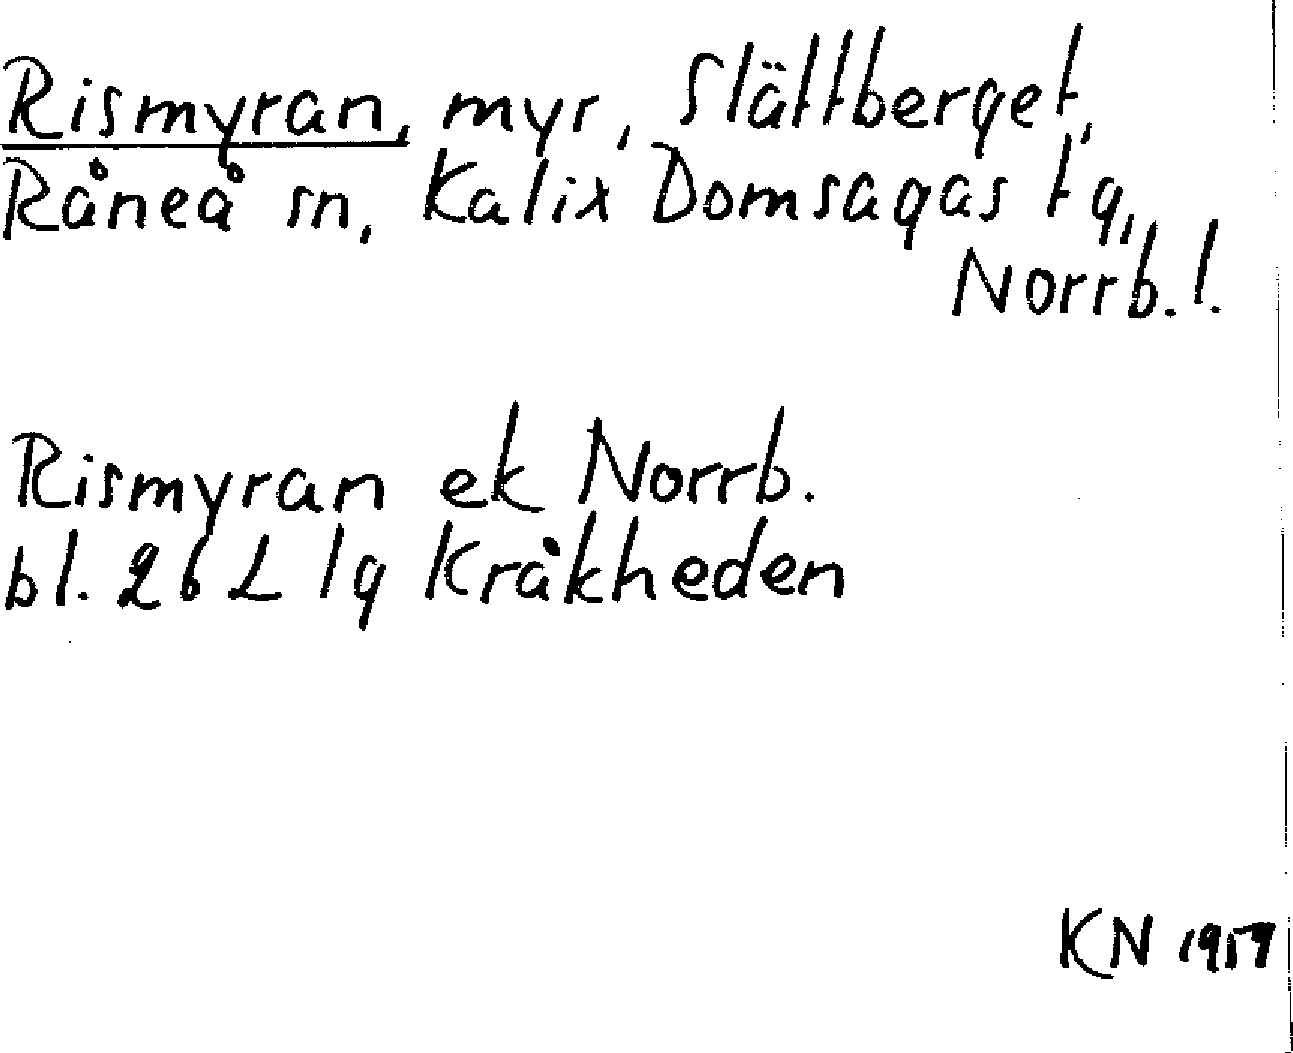 Rismyran, myr, Slättberget,
Råneå sn, Kalix Domsagas tg,
Norrb. l.
Rismyran ek Norrb.
bl. 26 L lg Kråkheden
KN 1959